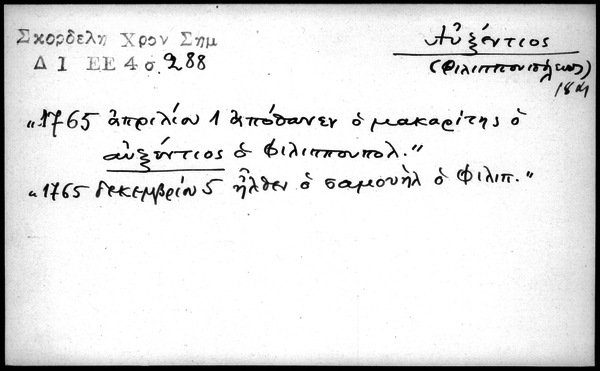 Σκορδελη Χρον Σημ
Δ 1 ΕΕ 4 σ. 288
Αὐξέντιος
(Φιλιππουπόλεως)
"1765 ἀπριλίου 1 ἀπόθανεν ὁ μακαρίτης ὁ
αὐξέντιος ὁ Φιλιππουπολ."
"1765 δεκεμβρίου 5 ἦλθεν ὁ σαμουὴλ ὁ Φιλιπ."